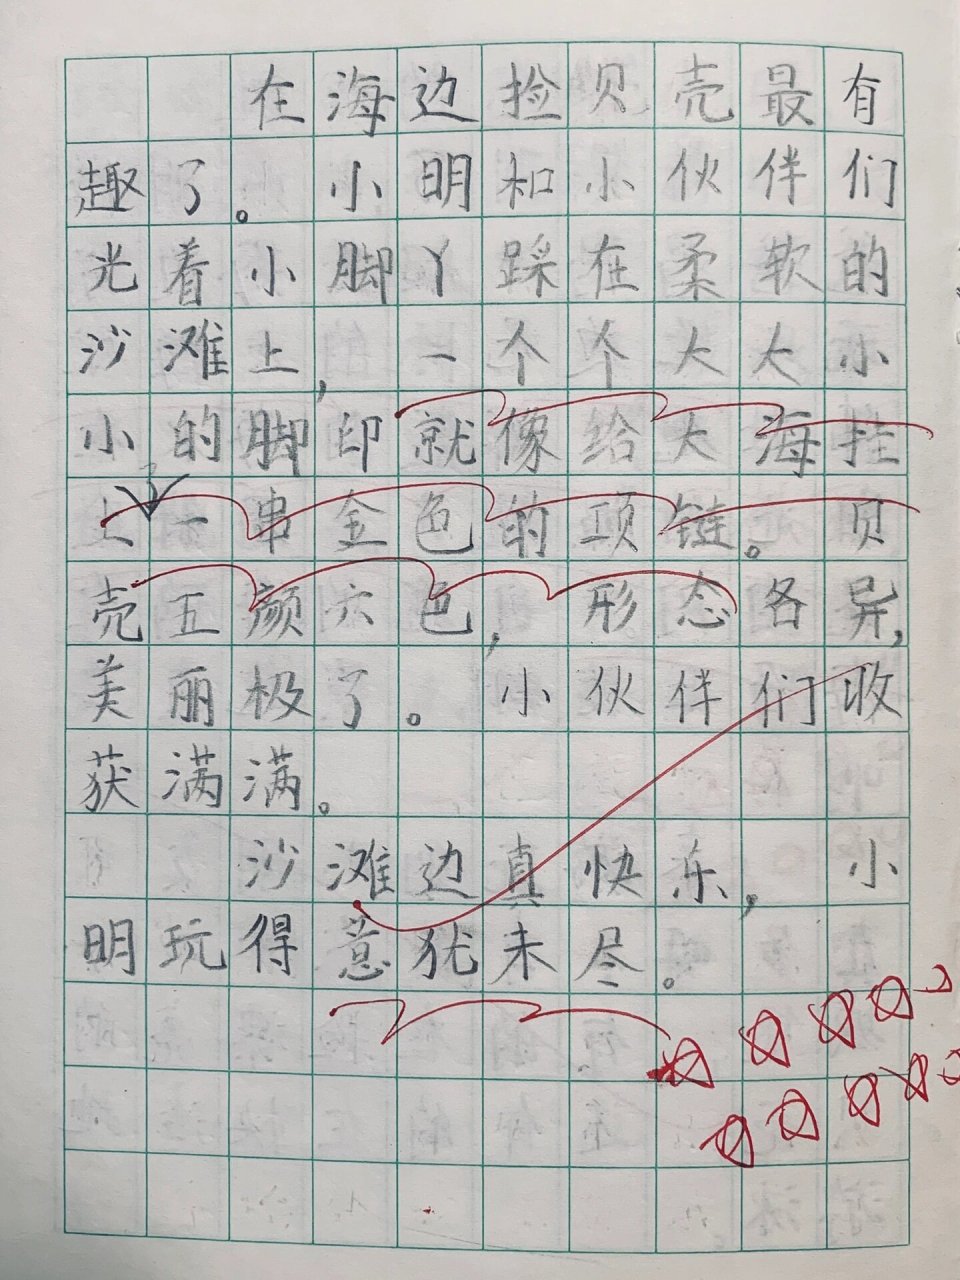 在海边捡贝壳最有
趣了。小明和小伙伴们
光着小脚丫踩在柔软的
沙滩上，一个个大大小
小的脚印就像给大海挂
上了一串金色的项链。贝
壳五颜六色，形态各异，
美丽极了。小伙伴们收
获满满。
沙滩边真快乐，小
明玩得意犹未尽。